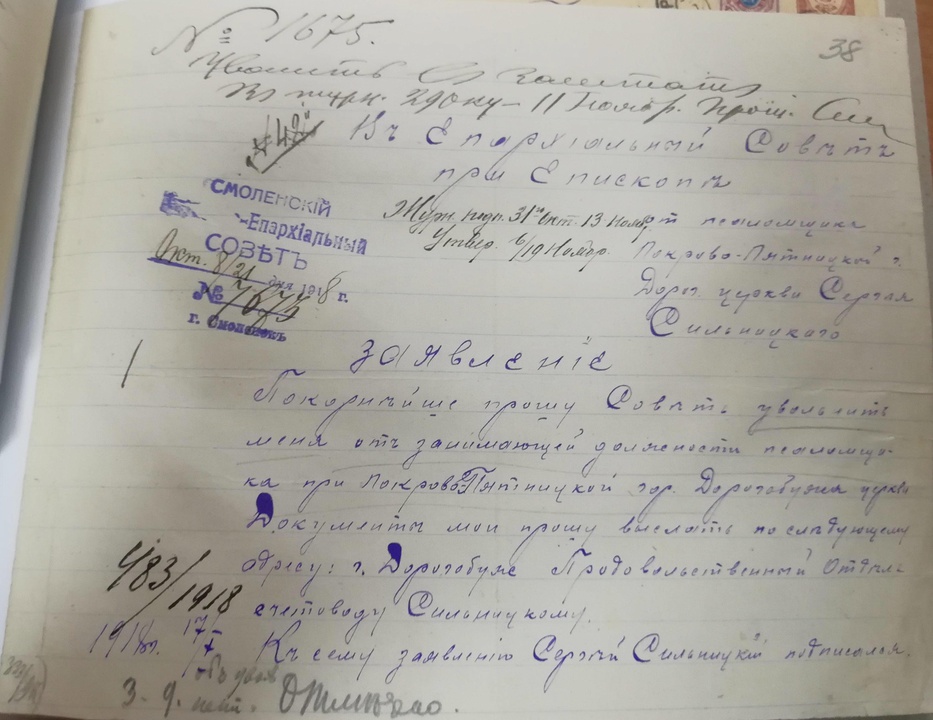 38
№ 1675.
Уволить
журн. 29 окт – 11 Ноябр.
Въ Епархіальный Совѣтъ
при Епископѣ
СМОЛЕНСКІЙ
Епархіальный
СОВѢТЪ
Окт. 8/21 дня 1918 г.
№ 1675
г. Смоленскъ
Журн. подп. 31 Окт. 13 Нояб.
Утвер. 6/19 Ноябр.
от псаломщика
Покрово-Пятницкой г.
Дорог. церкви Сергея
Сильницкого
Заявленіе
Покорнѣйше прошу Совѣтъ уволить
меня отъ занимающей должности псаломщи-
ка при Покрово-Пятницкой гор. Дорогобужа церкви
Документы мои прошу выслать по слѣдующему
адресу: г. Дорогобуж Продовольственный Отдѣлъ
счетоводу Сильницкому.
483/1918
1918г. 17/X
Къ сему заявленію Сергѣй Сильницкій подписался.
3. 9.